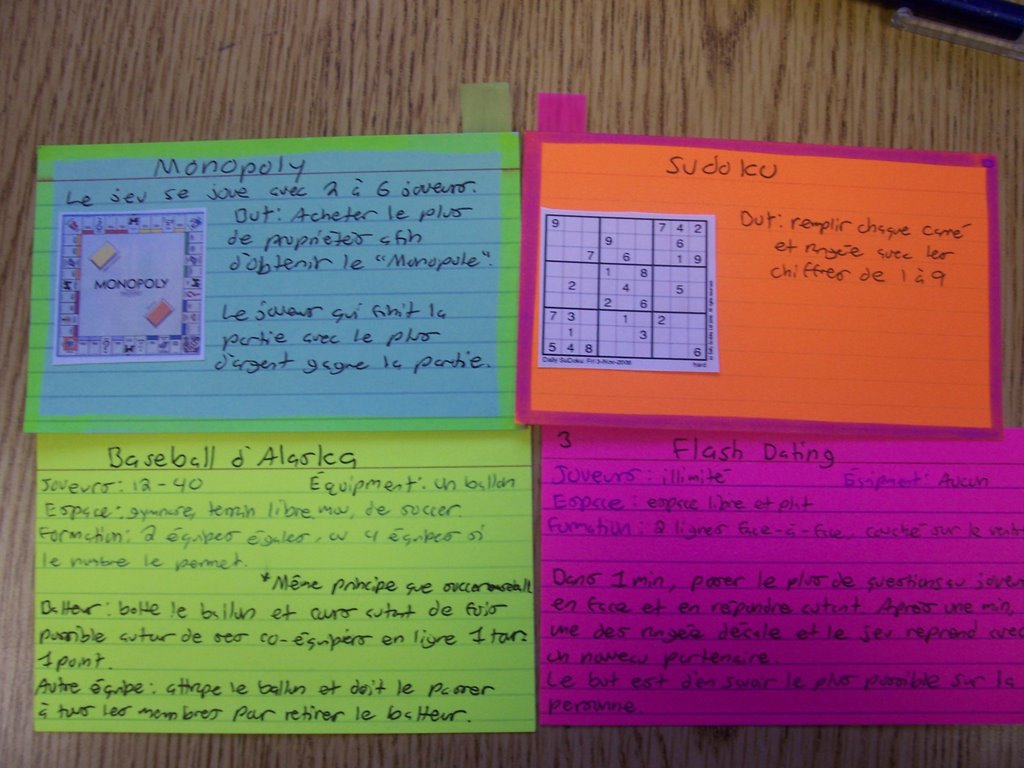 Monopoly
Le jeu se joue avec 2 à 6 joueurs.
But: Acheter le plus
de propriétés afin
d'obtenir le "Monopole".
Le joueur qui finit la
partie avec le plus
d'argent gagne la partie.
MONOPOLY
Sudoku
But: remplir chaque carré
et rangée avec les
chiffres de 1 à 9
9 7 4 2
9 6
7 6 1 9
1 8
2 4 5
2 6
7 3 1 2
1 3
5 4 8 6
Daily SuDoku: Fri 3-Nov-2006 hard
Baseball d'Alaska
Joueurs: 12-40 Équipment: un ballon
Espace: gymnase, terrain libre, de soccer
Formation: 2 équipes égales, ou 4 équipes si
le nombre le permet.
*Même principe que soccer baseball
Batteur: botte le ballon et cours autant de fois
possible autour de ses co-équipiers en ligne 1 tour:
1 point.
Autre équipe: attrape le ballon et doit le passer
à tous les membres pour retirer le batteur.
3
Flash Dating
Joueurs: illimité Équipment: Aucun
Espace: espace libre et plat
Formation: 2 lignes face-à-face, couché sur le ventre
Dans 1 min, poser le plus de questions au joueur
en face et en répondre autant. Après une min,
une des rangée décale et le jeu reprend avec
un nouveau partenaire.
Le but est d'en savoir le plus possible sur la
personne.